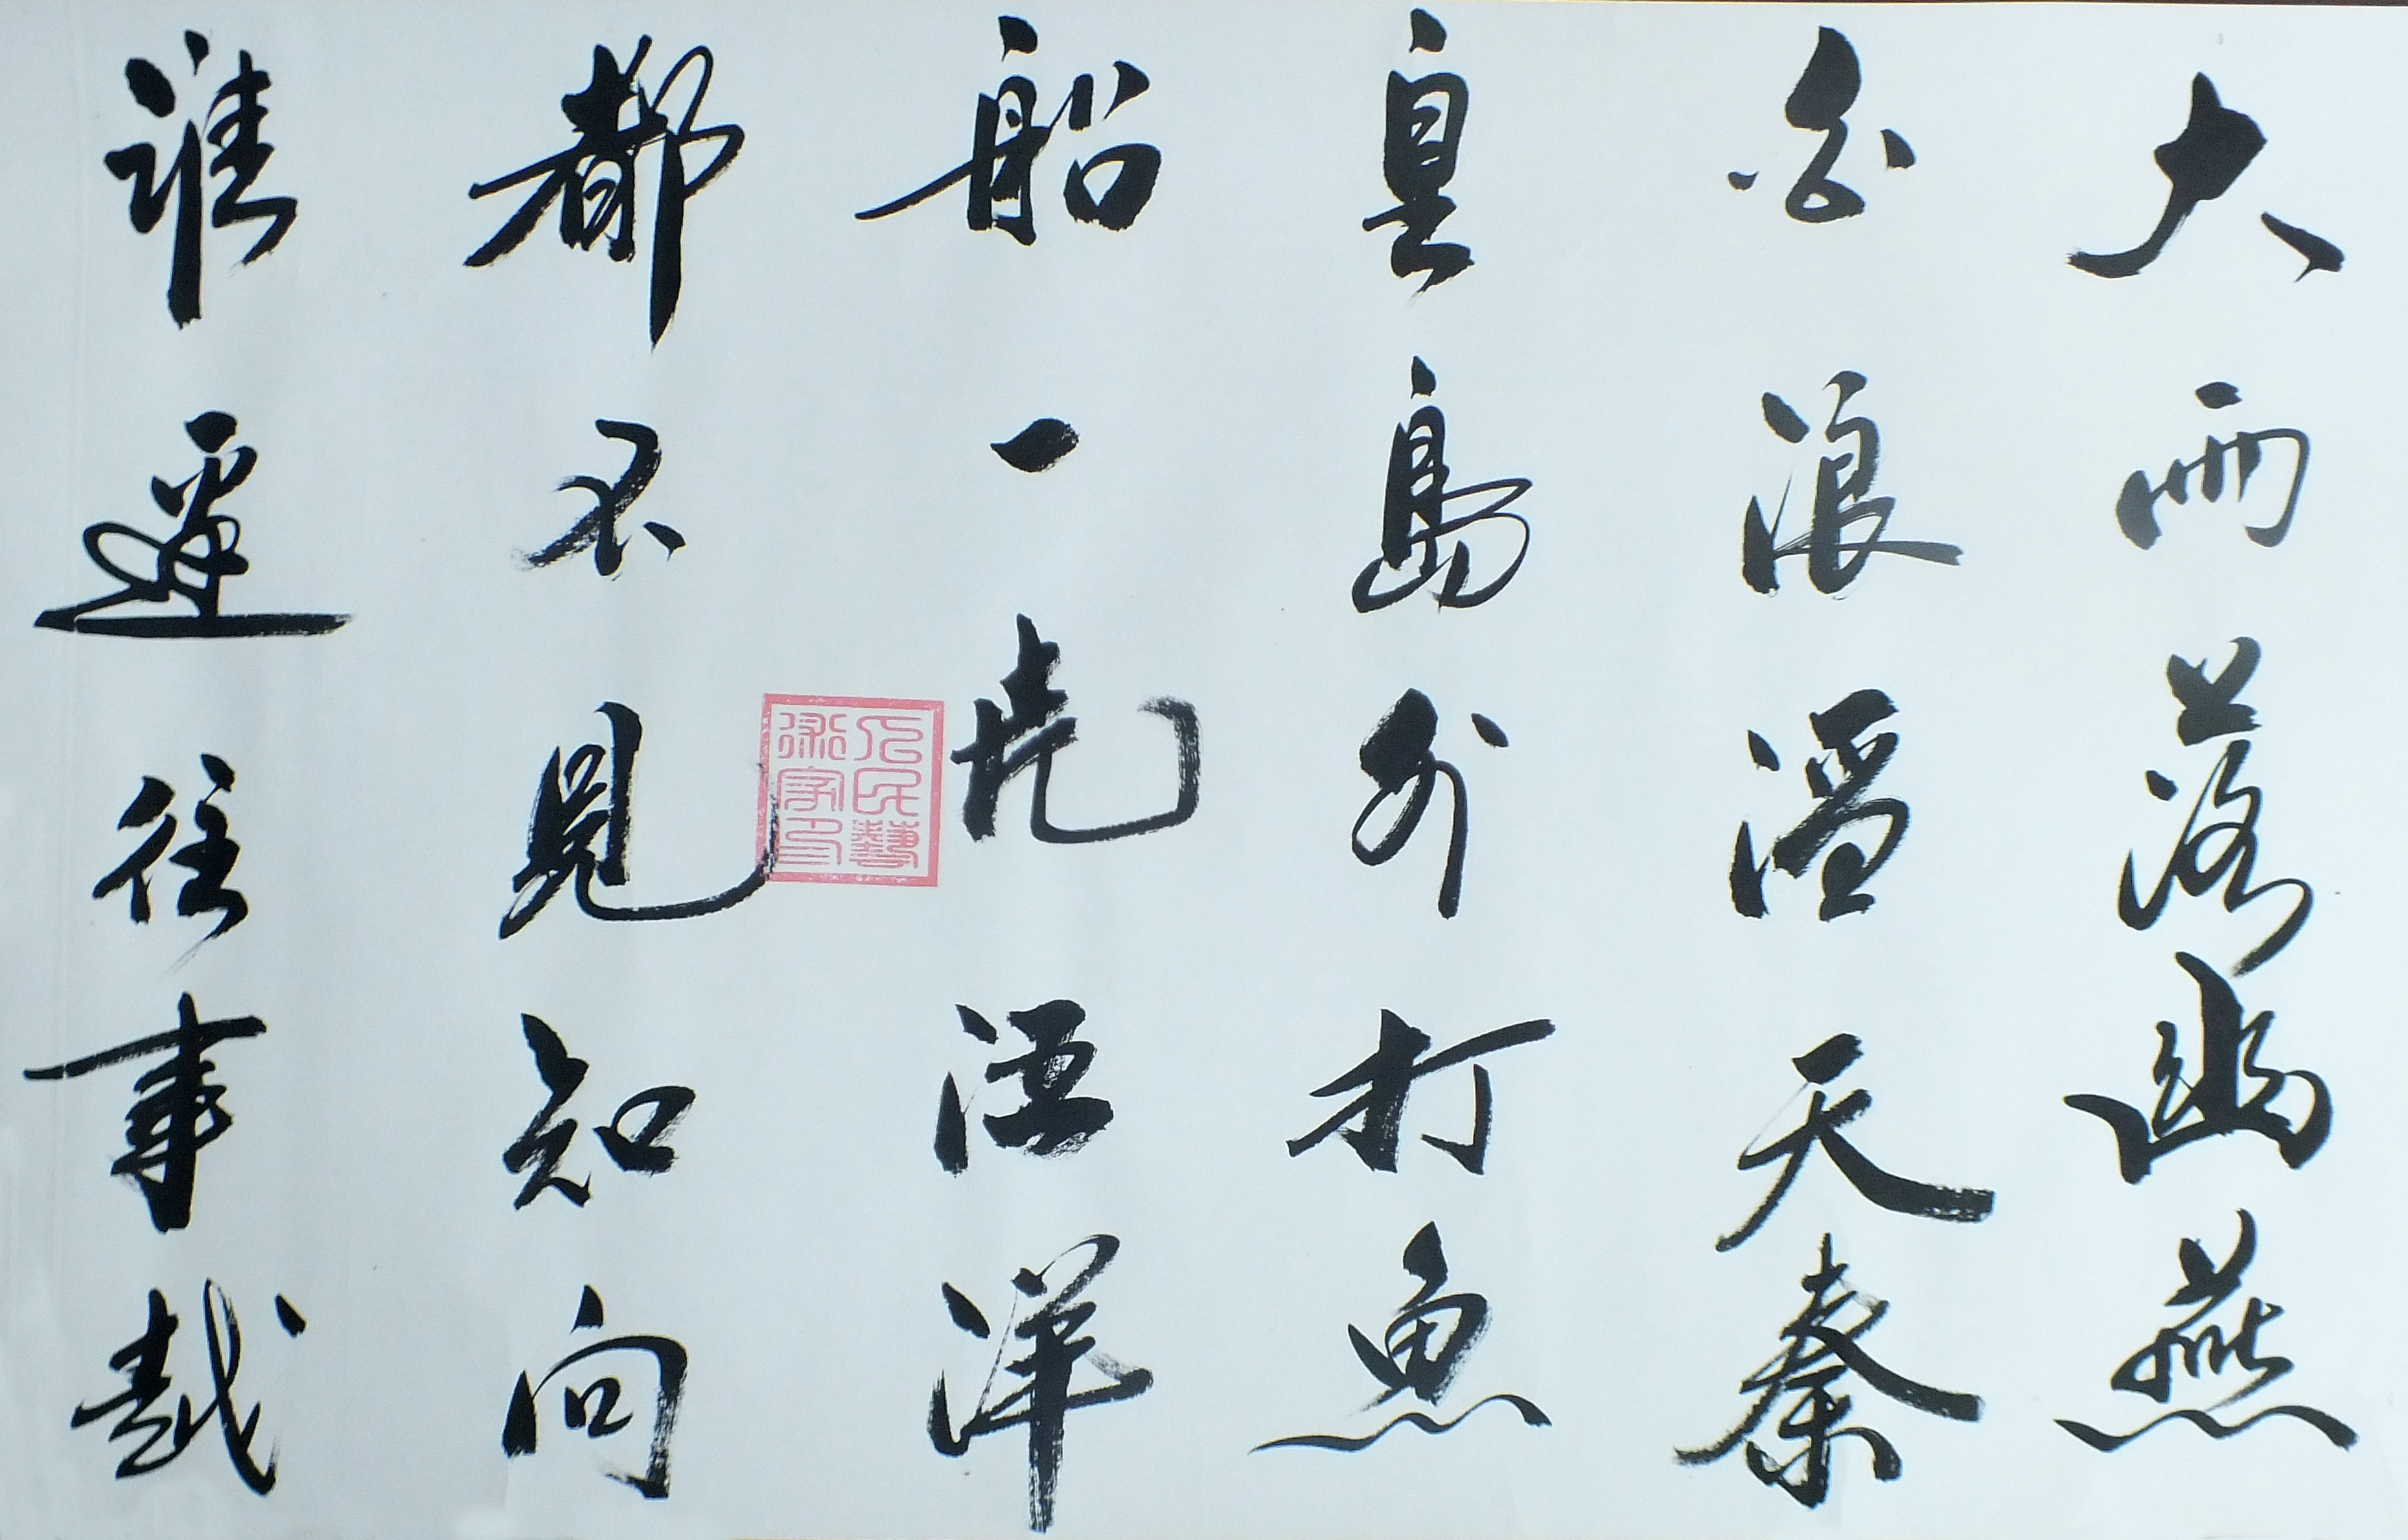 大雨落幽燕
白浪滔天秦
皇島外打魚
船一片汪洋
都不見知向
誰邊往事越
民藝
術家印